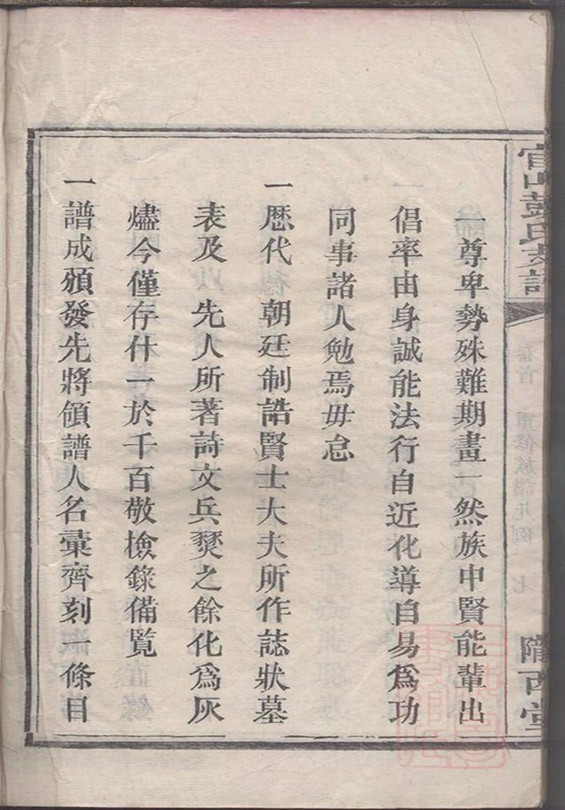 一尊卑勢殊難期畫一然族中賢能輩出
倡率由身誠能法行自近化導自易爲功
同事諸人勉焉毋怠
一歷代朝廷制誥賢士大夫所作誌狀墓
表及先人所著詩文兵燹之餘化爲灰
燼今僅存什一於千百敬檢錄備覽
一譜成頒發先將領譜人名彙齊刻一條目
彭氏支譜
卷首 重修族譜凡例 七
隴西堂